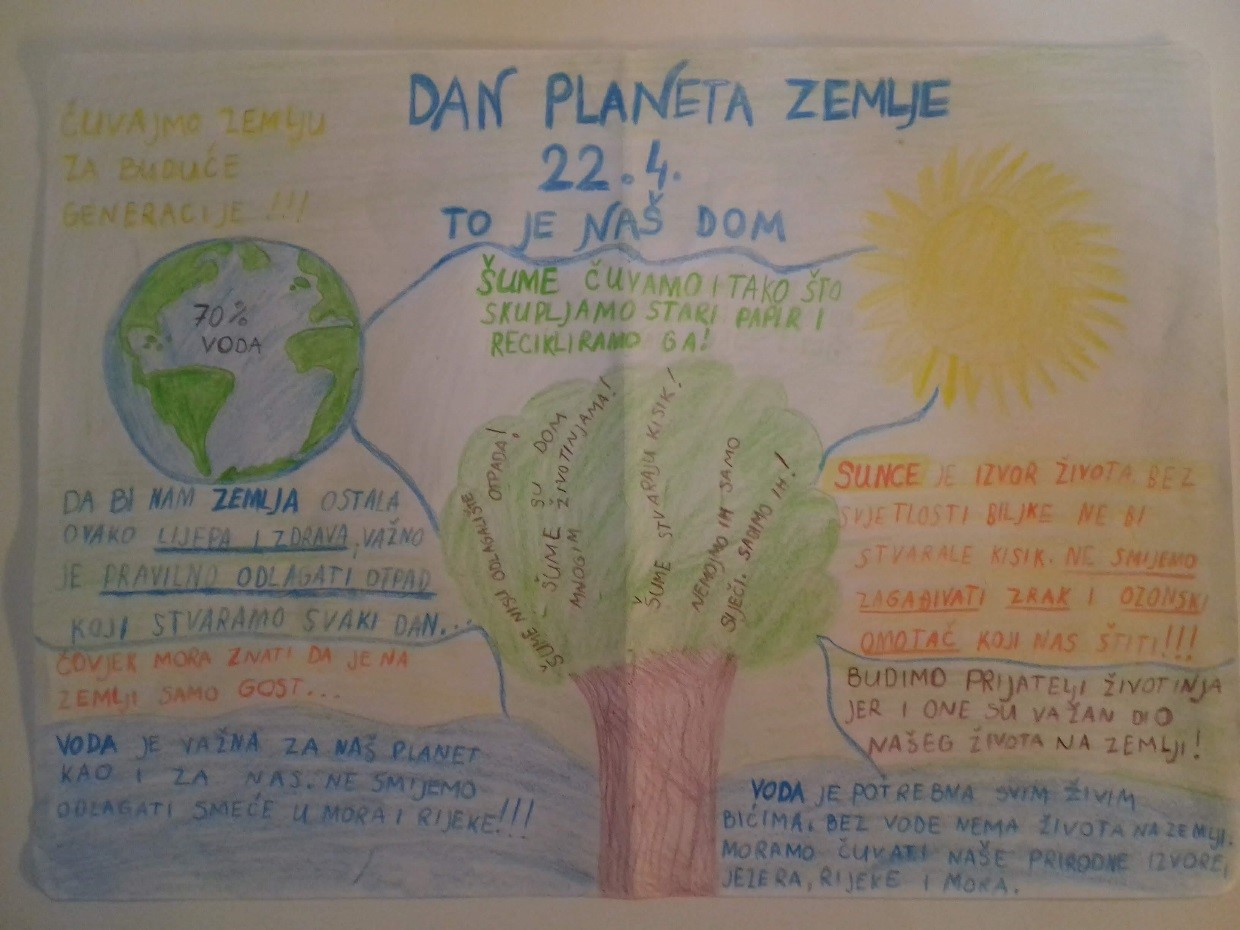 DAN PLANETA ZEMLJE
22.4.
TO JE NAŠ DOM
ČUVAJMO ZEMLJU
ZA BUDUĆE
GENERACIJE !!!
70%
VODA
ŠUME ČUVAMO I TAKO ŠTO
SKUPLJAMO STARI PAPIR I
RECIKLIRAMO GA!
ŠUME NISU ODLAGALIŠTE
OTPADA!
- ŠUME SU DOM
MNOGIM ŽIVOTINJAMA!
ŠUME STVARAJU KISIK!
NEMOJMO IH SAMO
SIJEĆI, SADIMO IH!
DA BI NAM ZEMLJA OSTALA
OVAKO LIJEPA I ZDRAVA, VAŽNO
JE PRAVILNO ODLAGATI OTPAD
KOJI STVARAMO SVAKI DAN...
ČOVJEK MORA ZNATI DA JE NA
ZEMLJI SAMO GOST...
VODA JE VAŽNA ZA NAŠ PLANET
KAO I ZA NAS. NE SMIJEMO
ODLAGATI SMEĆE U MORA I RIJEKE!!!
SUNCE JE IZVOR ŽIVOTA. BEZ
SVJETLOSTI BILJKE NE BI
STVARALE KISIK. NE SMIJEMO
ZAGAĐIVATI ZRAK I OZONSKI
OMOTAČ KOJI NAS ŠTITI!!!
BUDIMO PRIJATELJI ŽIVOTINJA
JER I ONE SU VAŽAN DIO
NAŠEG ŽIVOTA NA ZEMLJI!
VODA JE POTREBNA SVIM ŽIVIM
BIĆIMA. BEZ VODE NEMA ŽIVOTA NA ZEMLJI.
MORAMO ČUVATI NAŠE PRIRODNE IZVORE,
JEZERA, RIJEKE I MORA.